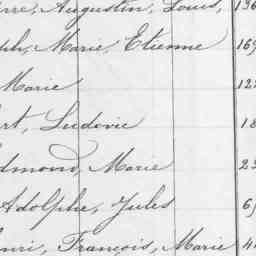 rre, Augustin, Louis, 136
ph, Marie, Etienne 169
Marie 122
rt, Ludovic 18
dmond, Marie 23
Adolphe, Jules 65
enri, François, Marie 4